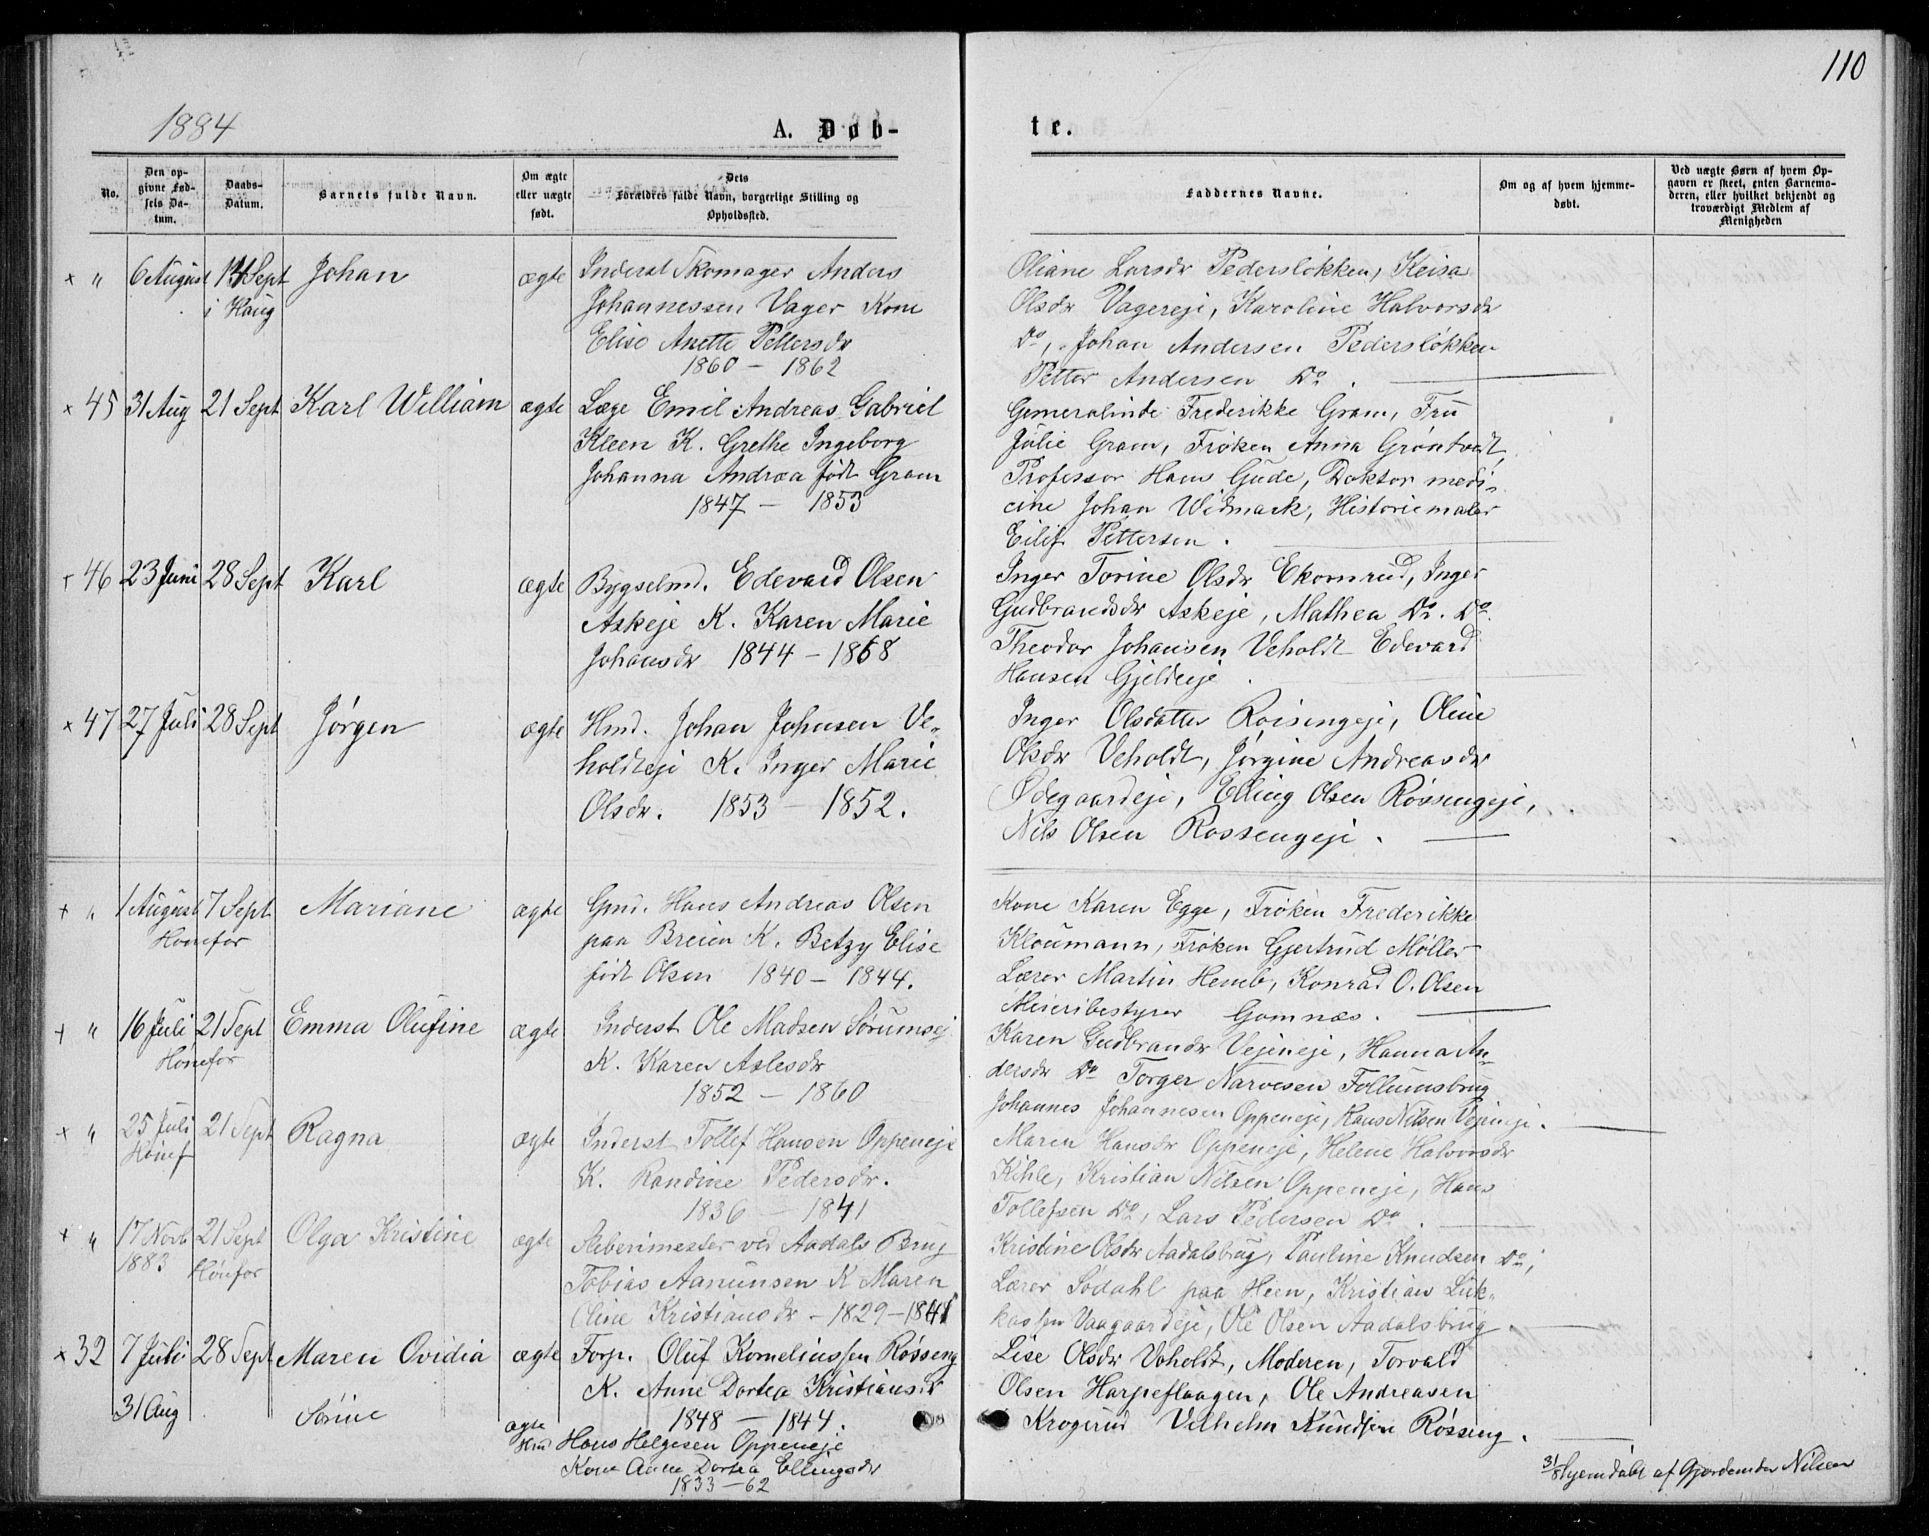 110
1884
A. Døb-
te.
No.
Den op-
givne Fød-
sels Da-
tum.
Daabs-
Datum.
Barnets fulde Navn.
Om ægte
eller uægte
født.
Dets
Forældres fulde Navn, borgerlige Stilling og
Opholdssted.
Faddernes Navne.
Om og af hvem hjemme-
døbt.
Ved uægte Børn af hvem Op-
gaven er skeet, enten Barnemo-
deren, eller hvilket bekjendt og
troværdigt Medlem af
Menigheden
× " 6 August 14 Sept Johan ægte Inderst Skomager Anders
i Haug Johannessen Vager Kone
Elise Anette Pettersdr
1860 - 1862
Oliane Larsdr Pedersløkken, Keisa
Olsdr Vagereje, Karoline Halvorsdr
Do, Johan Andersen Pedersløkken
Petter Andersen Do.
× 45 31 Aug 21 Sept Karl William ægte Læge Emil Andreas Gabriel
Kleen K. Grethe Ingeborg
Johanna Andrea født Gram
1847 - 1853
Generalinde Frederikke Gram, Fru
Julie Gram, Frøken Anna Grøntvedt,
Professor Hans Gude, Doktor medi-
cine Johan Widmark, Historiemaler
Eilif Pettersen.
× 46 23 Juni 28 Sept Karl ægte Bygselmd. Edevard Olsen
Askeje K. Karen Marie
Johansdr 1844 - 1858
Inger Torine Olsdr Ekornrud, Inger
Gudbrandsdr Askeje, Mathea Do. Do.
Theodor Johansen Veholdt Edevard
Hansen Gjeldeje.
× 47 27 Juli 28 Sept Jørgen ægte Hmd. Johan Johnsen Ve-
holdteje K. Inger Marie
Olsdr. 1853 - 1852.
Inger Olsdatter Roisengeje, Oline
Olsdr Veholdt, Jørgine Andreasdr
Ødegaardeje, Elling Olsen Røssengeje,
Nils Olsen Rossengeje.
× " 1 August 7 Sept Mariane ægte Gmd. Hans Andreas Olsen
Hønefos paa Breien K. Betzy Elise
født Olsen 1840 - 1844.
Kone Karen Egge, Frøken Frederikke
Kloumann, Frøken Gjertrud Møller
Lærer Martin Hemb, Konrad O. Olsen
Meieribestyrer Gomnæs.
× " 16 Juli 21 Sept Emma Olufine ægte Inderst Ole Madsen Sørumsej
Hønefos K. Karen Axlesdr
1852 - 1860
Karen Gudbrandr Vejeneje, Hanna An-
dersdr Do Torger Narvesen Follumsbrug
Johannes Johannesen Oppeneje, Hans Nilsen Vejeneje.
× " 25 Juli 21 Sept Ragna ægte Inderst Tollef Hansen Oppeneje
Hønef K. Randine Pedersdr.
1836 - 1841
Maren Hansdr Oppeneje, Helene Halvorsdr
Kihle, Kristian Nilsen Oppeneje, Hans
Tollefsen Do, Lars Pedersen Do.
× " 17 Novb 21 Sept Olga Kristine ægte Sleberimester ved Aadals Brug
1883 Hønefos Tobias Aanunsen K Maren
Oline Kristiansdr - 1829 - 1841
Kristine Olsdr Aadalsbrug, Pauline Knudsen Do,
Lærer Sødahl paa Heen, Kristian Luk-
kassen Vaagaardeje, Ole Olsen Aadalsbrug.
× 32 7 Juli 28 Sept Maren Ovidia ægte Forp. Oluf Korneliussen Røsseng
K. Anne Dortea Kristiansdr
1848 - 1844.
Lise Olsdr Voholdt, Moderen, Torvald
Olsen Harpeflaagen, Ole Andreasen
Krogerud Vilhelm Knudsen Røsseng.
31 Aug Sorine ægte
Hmd Hans Helgesen Oppeneje
Kone Anne Dortea Ellingsdr
1833 - 62
31/8 Hjemdøbt af Gjordemoder Nilsen